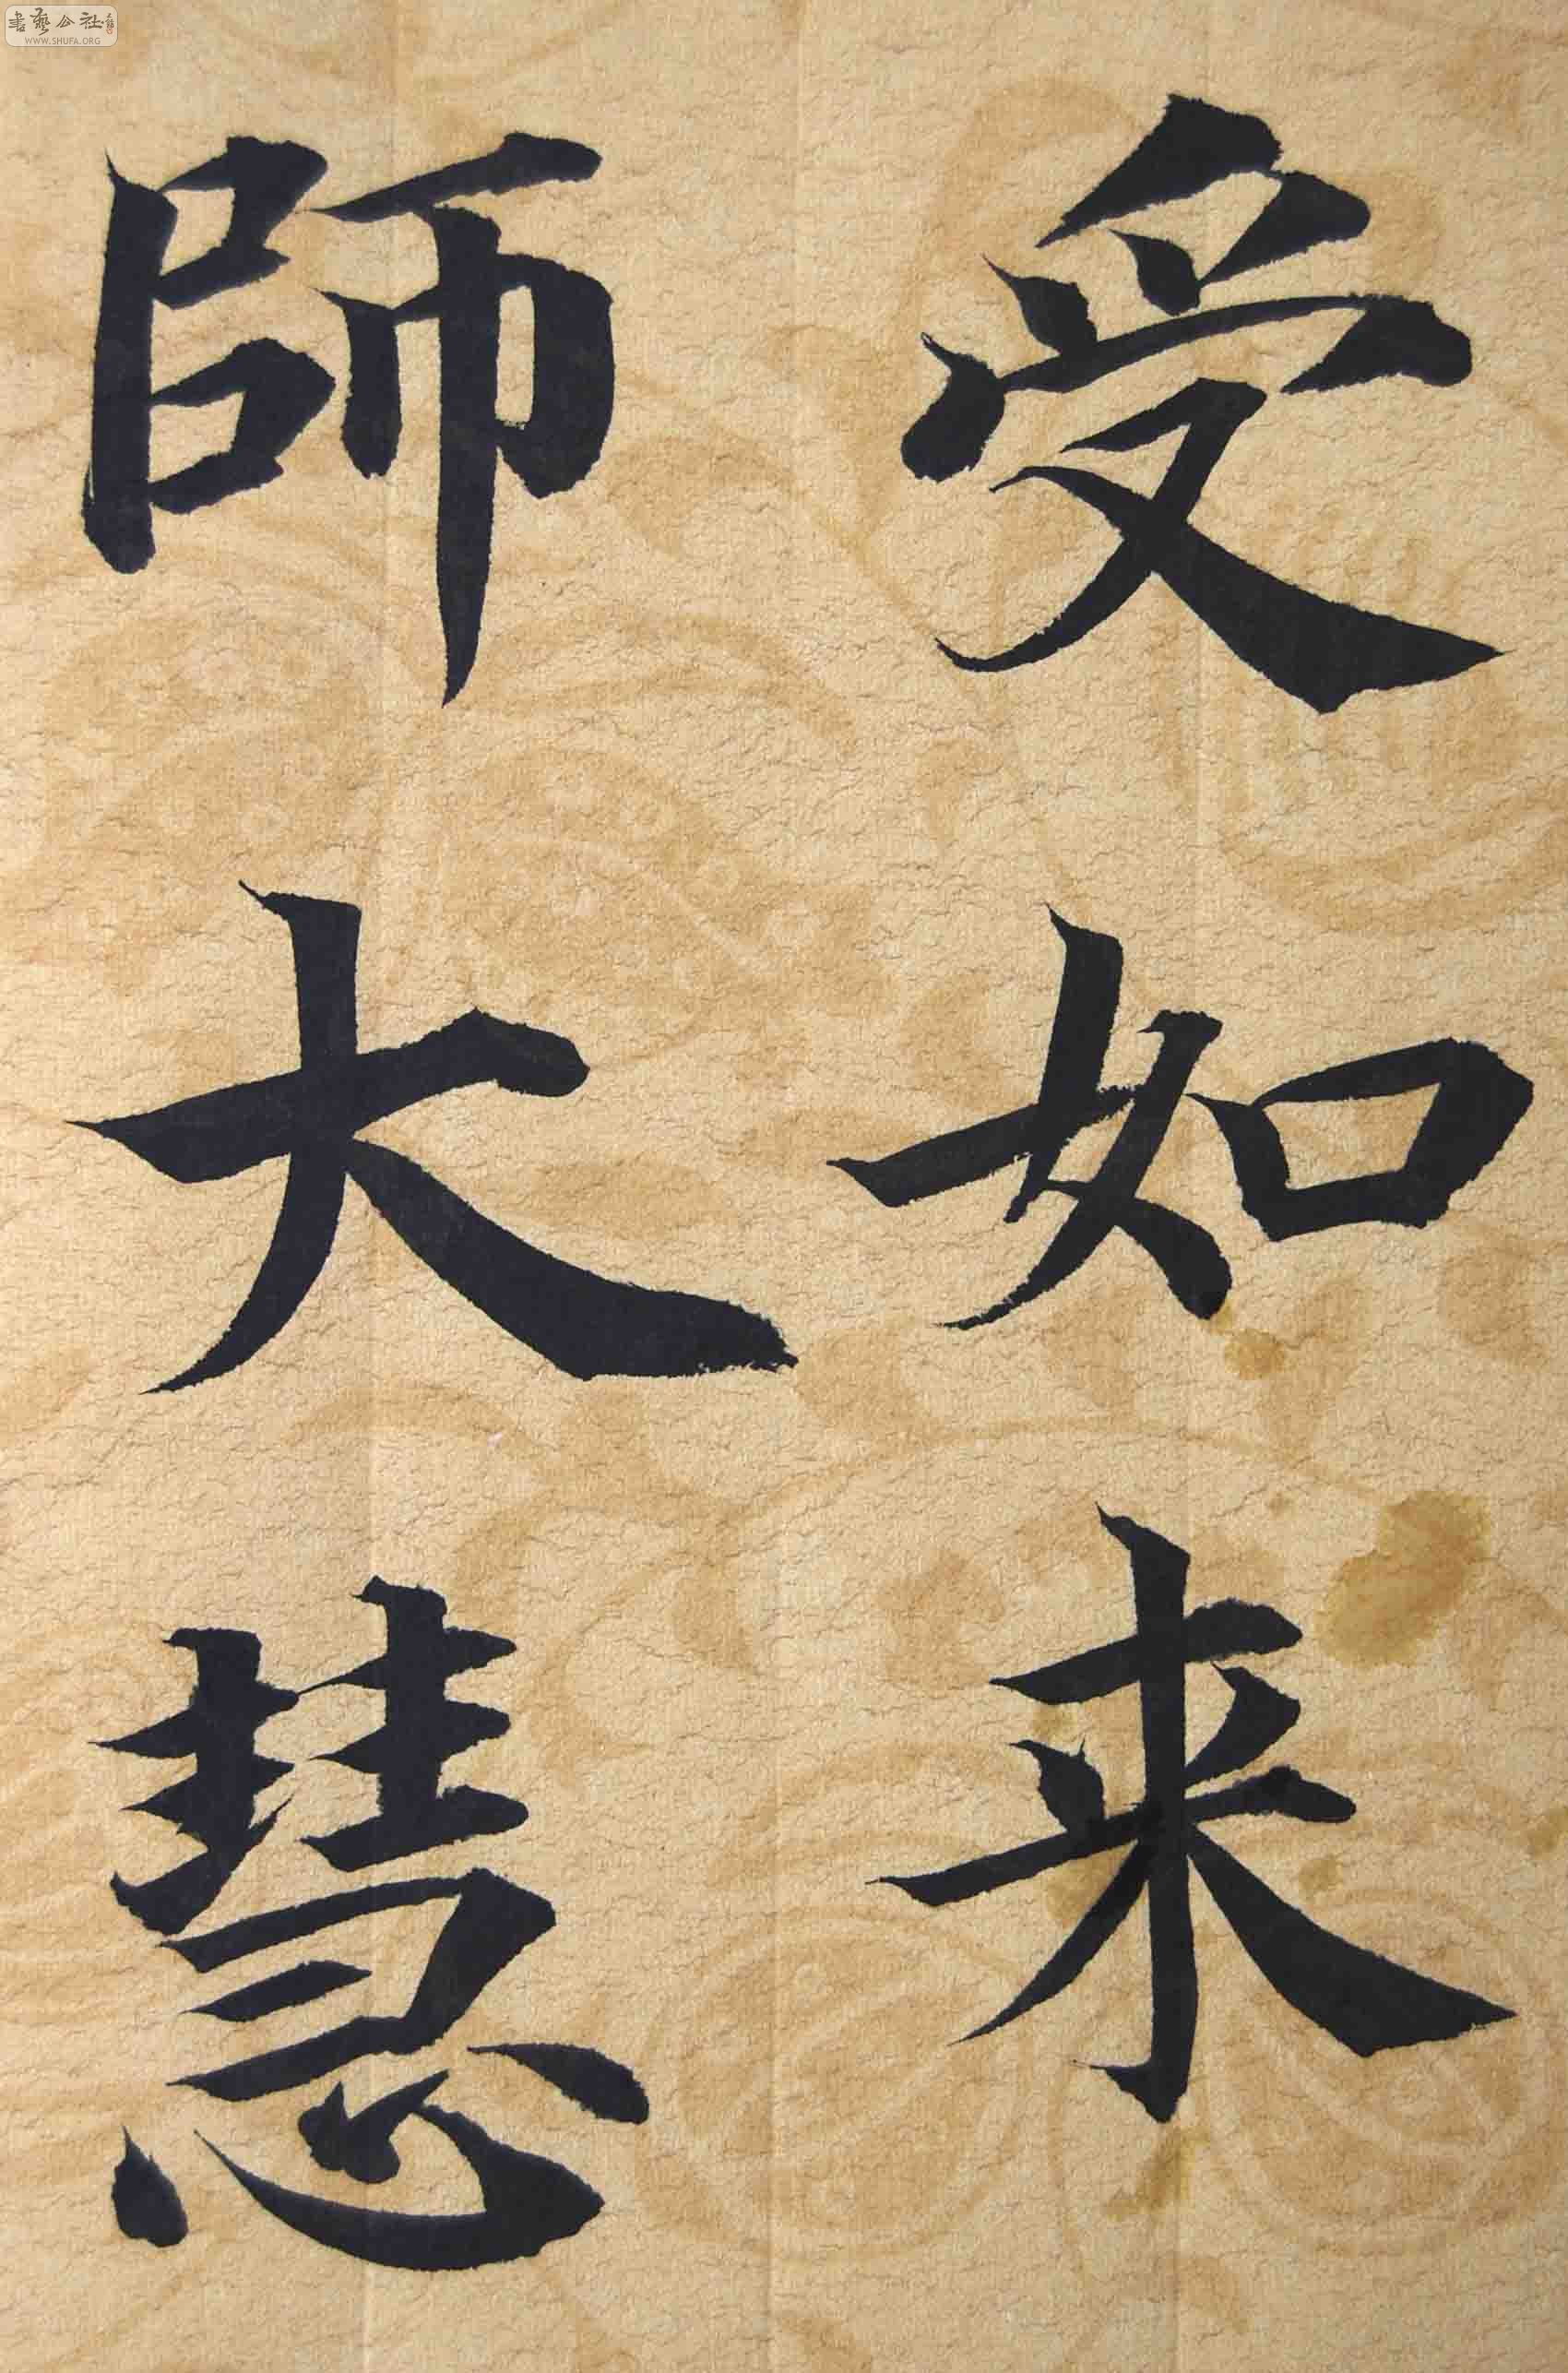 受如来
師大慧
書藝公社
WWW.SHUFA.ORG